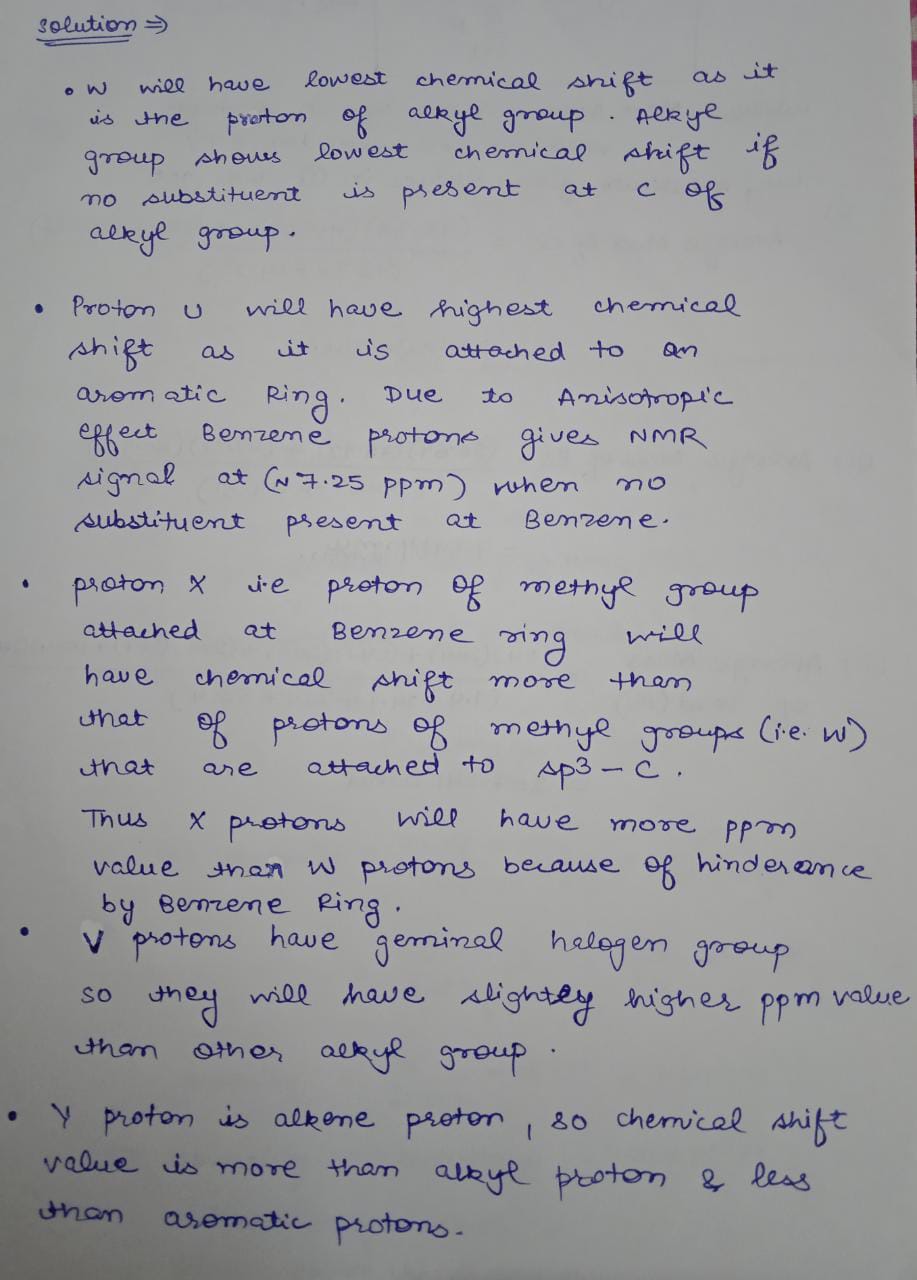 Solution ⇒
• W will have lowest chemical shift as it
is the proton of alkyl group. Alkyl
group shows lowest chemical shift if
no substituent is present at C of
alkyl group.
• Proton U will have highest chemical
shift as it is attached to an
aromatic Ring. Due to Anisotropic
effect Benzene protons gives NMR
signal at (~7.25 ppm) when no
substituent present at Benzene.
• proton X i.e proton of methyl group
attached at Benzene ring will
have chemical shift more than
that of protons of methyl groups (i.e. W)
that are attached to sp3-C.
Thus X protons will have more ppm
value than W protons because of hinderance
by Benzene Ring.
• V protons have geminal halogen group
so they will have slightly higher ppm value
than other alkyl group.
• Y proton is alkene proton, so chemical shift
value is more than alkyl proton & less
than aromatic protons.